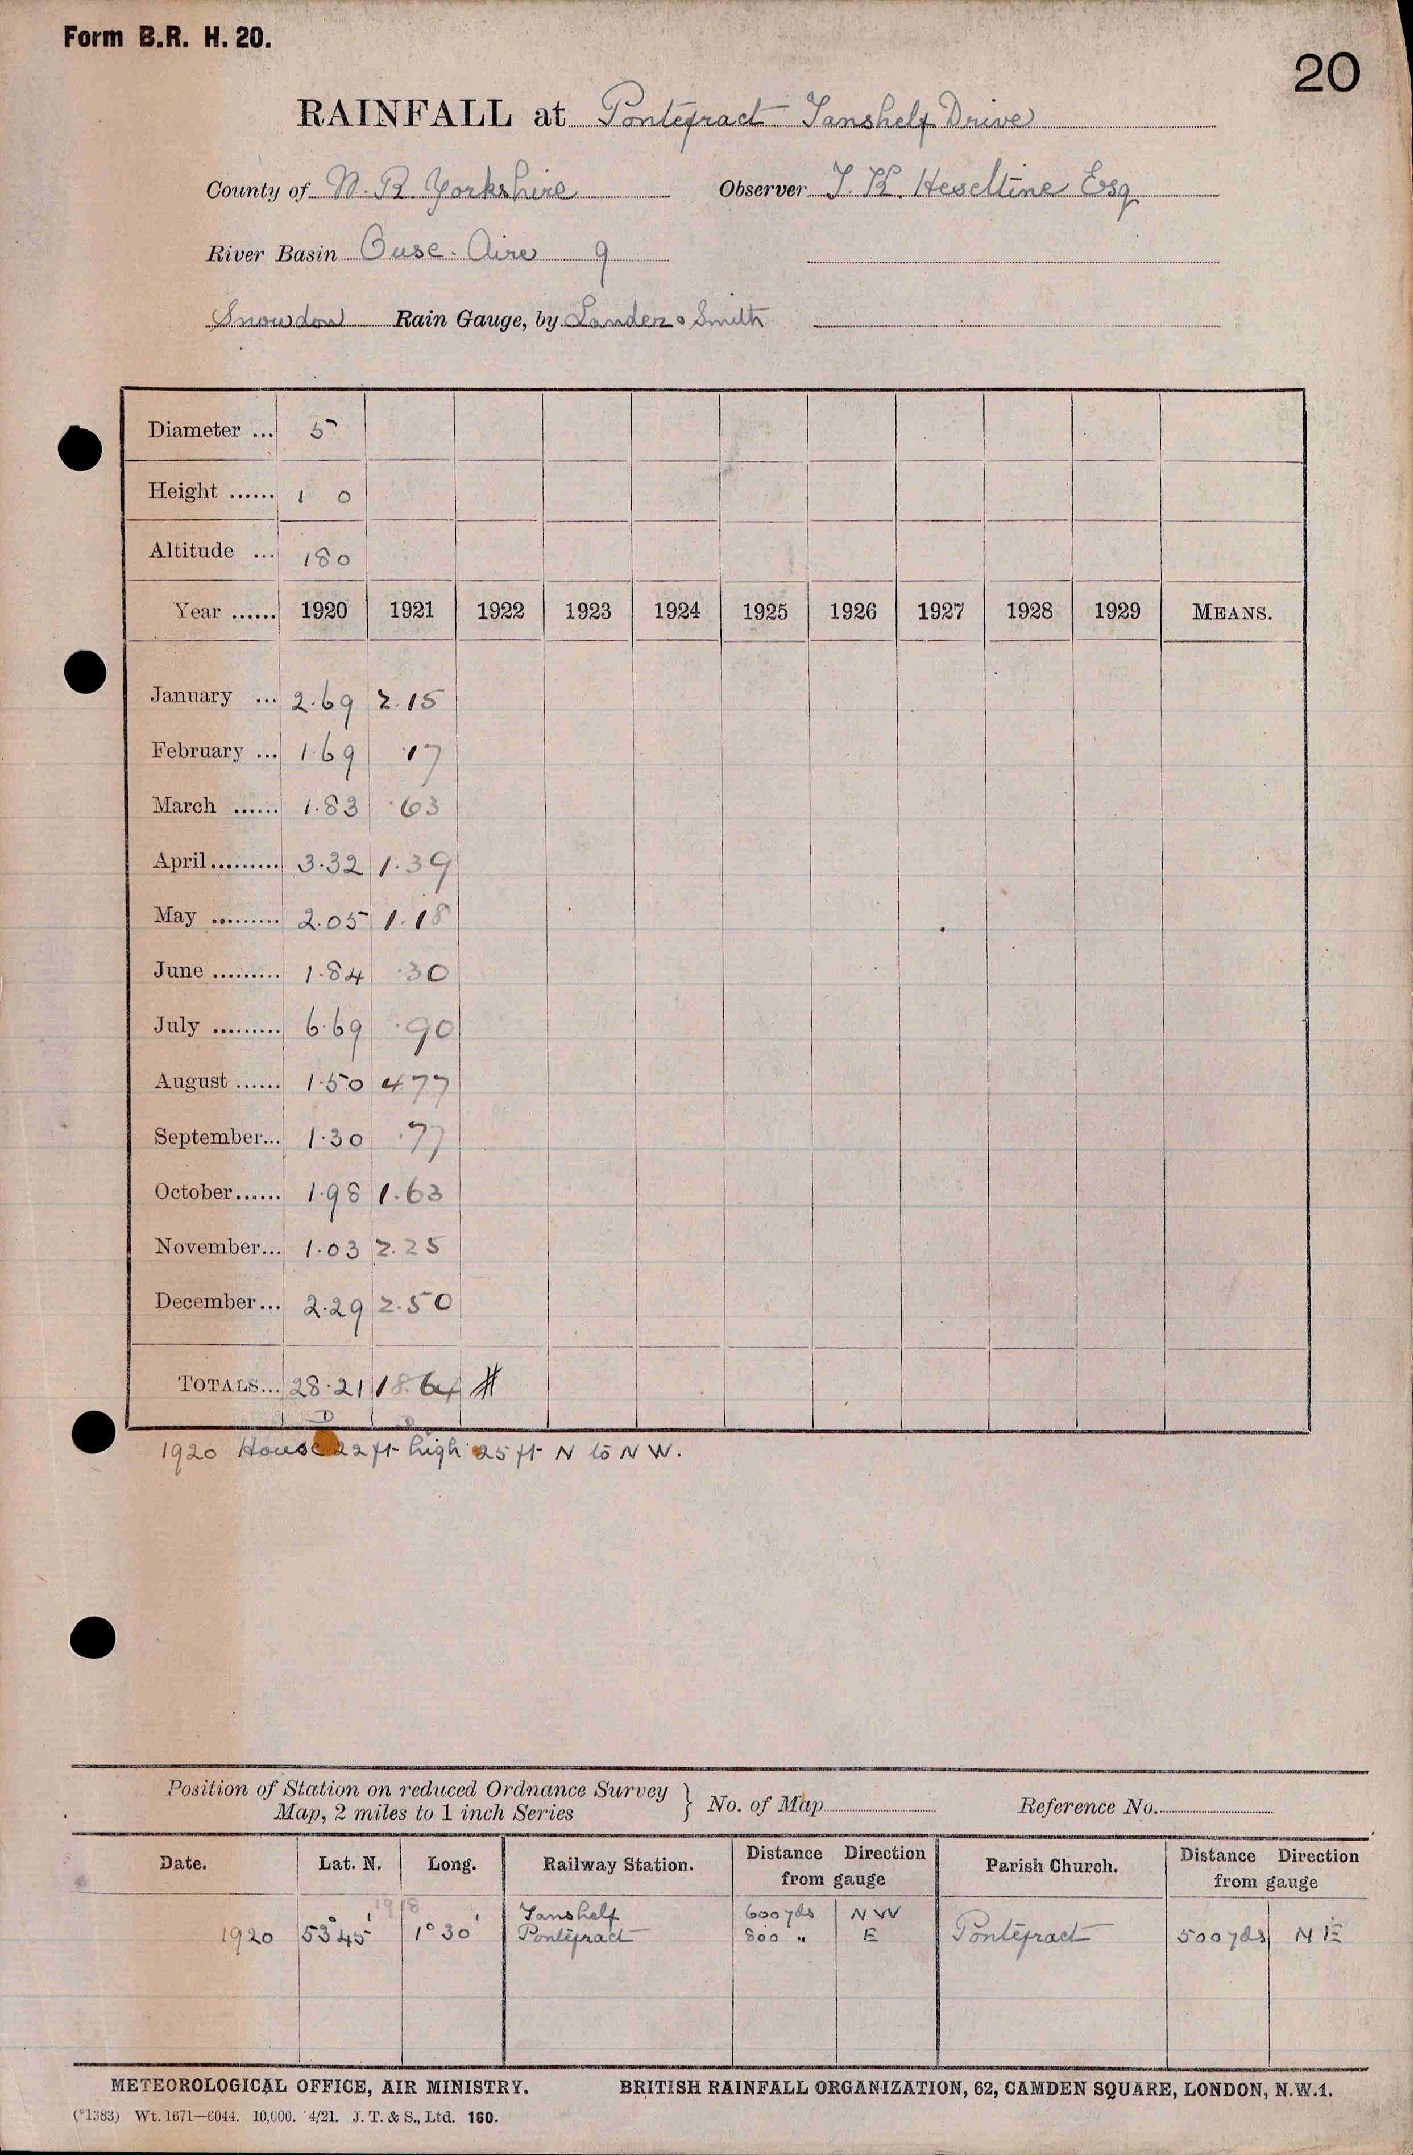 Form B.R. H. 20.
20
RAINFALL at Pontefract Tanshelf Drive
County of W. R. Yorkshire Observer T. K. Heseltine Esq
River Basin Ouse - Aire 9
Snowdon Rain Gauge, by Lander & Smith
Diameter ... 5
Height ...... 1 0
Altitude ... 180
Year ...... 1920 1921 1922 1923 1924 1925 1926 1927 1928 1929 MEANS.
January ... 2.69 2.15
February ... 1.69 .17
March ...... 1.83 .63
April ......... 3.32 1.39
May ......... 2.05 1.18
June ......... 1.84 .30
July ......... 6.69 .90
August ...... 1.50 4.77
September... 1.30 .77
October...... 1.98 1.63
November... 1.03 2.25
December... 2.29 2.50
TOTALS... 28.21 18.64 #
D D
1920 House 22 ft high 25 ft N to N W.
Position of Station on reduced Ordnance Survey
Map, 2 miles to 1 inch Series } No. of Map Reference No.
Date. Lat. N. Long. Railway Station. Distance Direction from gauge Parish Church. Distance Direction from gauge
1918
Tanshelf 600 yds N W
1920 53° 45' 1° 30' Pontefract 800 " E Pontefract 500 yds N E
METEOROLOGICAL OFFICE, AIR MINISTRY. BRITISH RAINFALL ORGANIZATION, 62, CAMDEN SQUARE, LONDON, N.W.1.
(*1383) Wt. 1671—6044. 10,000. 4/21. J. T. & S., Ltd. 160.